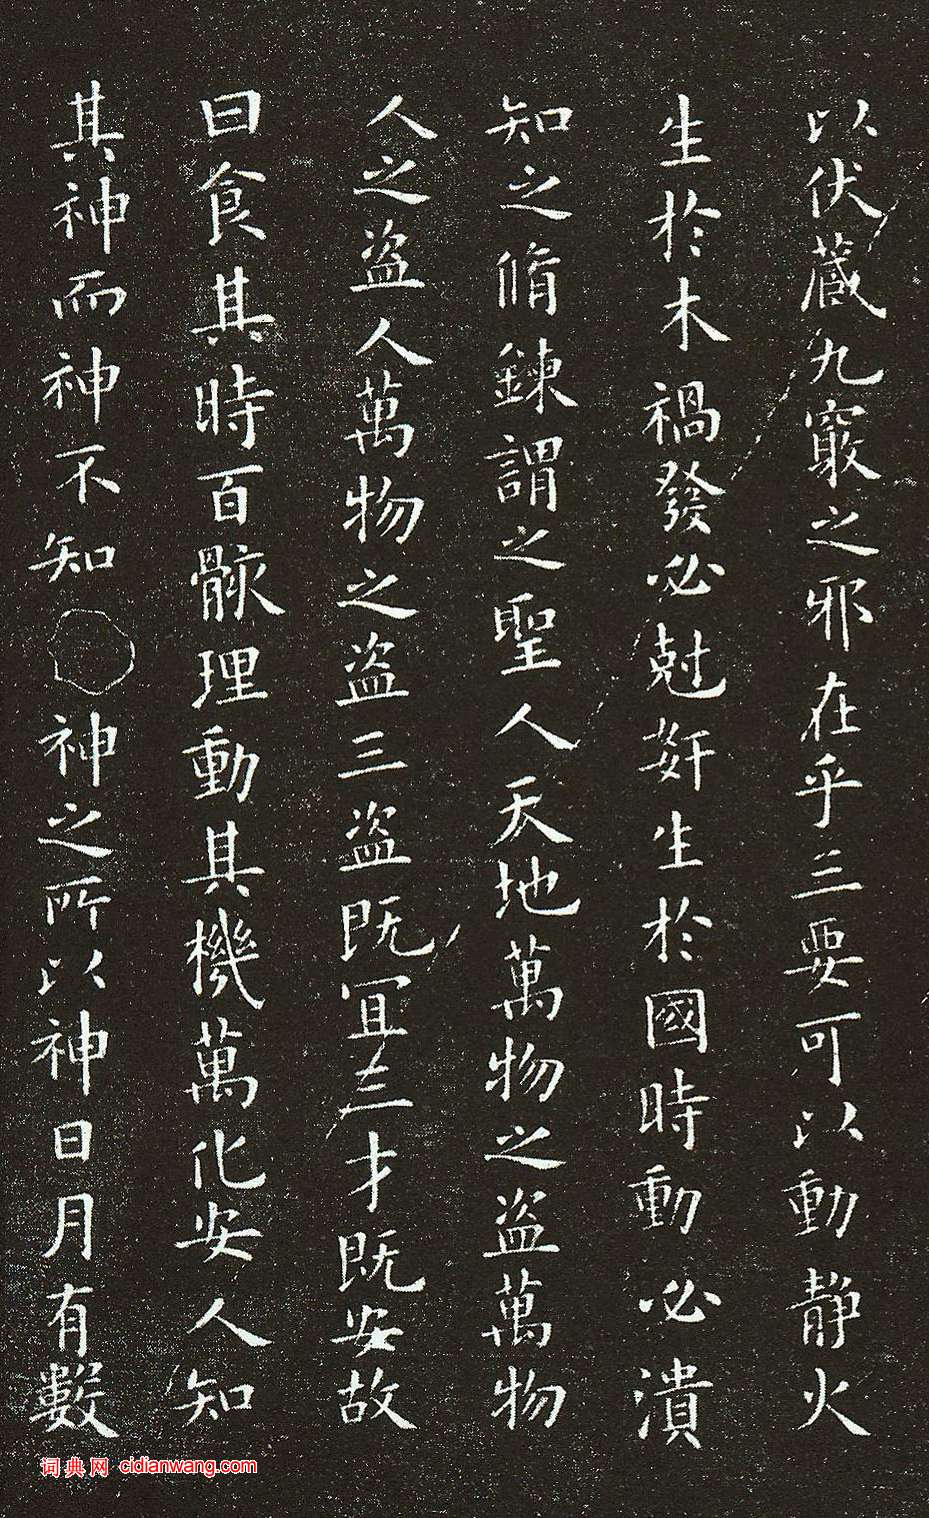 以伏藏九竅之邪在乎三要可以動靜火
生於木禍發必尅姧生於國時動必潰
知之脩鍊謂之聖人天地萬物之盜萬物
人之盜人萬物之盜三盜既冝三才既安故
曰食其時百骸理動其機萬化安人知
其神而神不知神之所以神日月有數
词典网 cidianwang.com